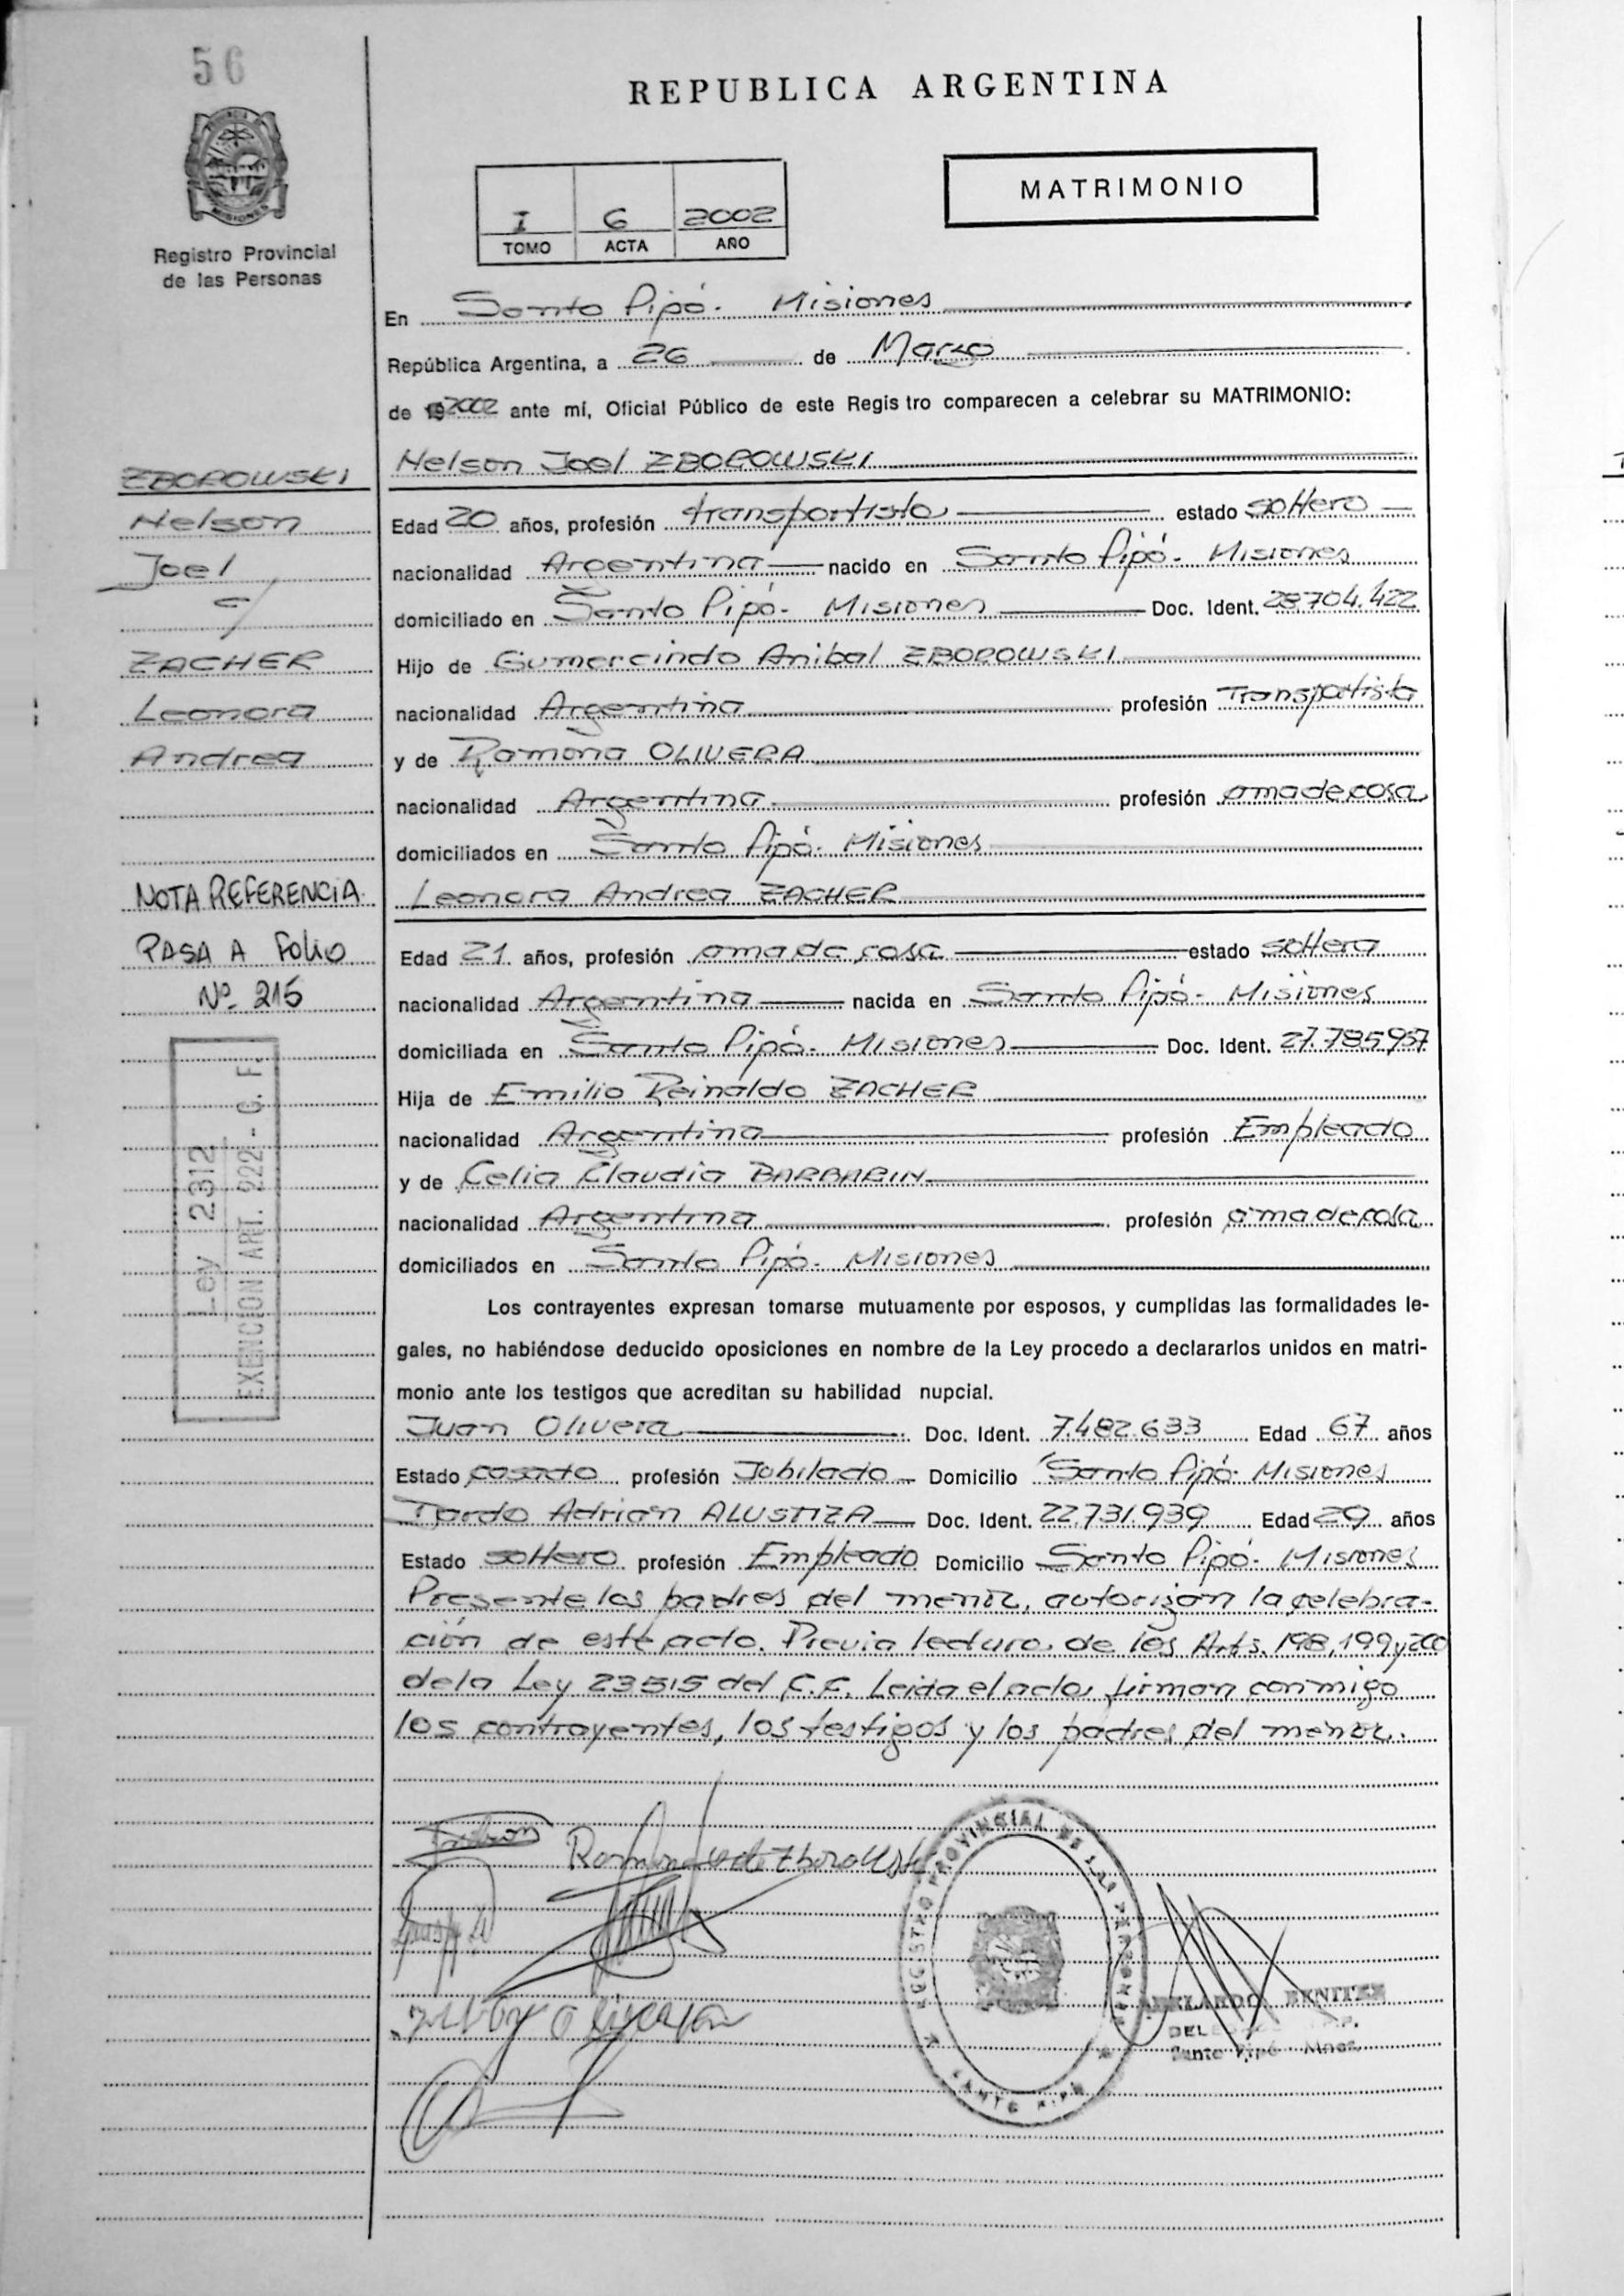 56
REPUBLICA ARGENTINA
MISIONES
Registro Provincial
de las Personas
I 6 2002
TOMO ACTA AÑO
MATRIMONIO
En Santo Pipó. Misiones
República Argentina, a 26 de Marzo
de 2002 ante mí, Oficial Público de este Regis tro comparecen a celebrar su MATRIMONIO:
ZBOROWSKI
Nelson
Joel
y
ZACHER
Leonora
Andrea
NOTA REFERENCIA
PASA A FOLIO
Nº 215
Ley 2312
EXENCION ART. 222 - C. F.
Nelson Joel ZBOROWSKI
Edad 20 años, profesión transportista estado soltero
nacionalidad Argentina nacido en Santo Pipó. Misiones
domiciliado en Santo Pipó. Misiones Doc. Ident. 28704.422
Hijo de Gumercindo Anibal ZBOROWSKI
nacionalidad Argentina profesión Transportista
y de Ramona OLIVERA
nacionalidad Argentina profesión ama de casa
domiciliados en Santo Pipó. Misiones
Leonora Andrea ZACHER
Edad 21 años, profesión ama de casa estado soltera
nacionalidad Argentina nacida en Santo Pipó. Misiones
domiciliada en Santo Pipó. Misiones Doc. Ident. 27.785957
Hija de Emilio Reinaldo ZACHER
nacionalidad Argentina profesión Empleado
y de Celia Claudia BARBARIN
nacionalidad Argentina profesión ama de casa
domiciliados en Santo Pipó. Misiones
Los contrayentes expresan tomarse mutuamente por esposos, y cumplidas las formalidades le-
gales, no habiéndose deducido oposiciones en nombre de la Ley procedo a declararlos unidos en matri-
monio ante los testigos que acreditan su habilidad nupcial.
Juan Olivera Doc. Ident. 7.482.633 Edad 67 años
Estado casado profesión Jubilado Domicilio Santo Pipó. Misiones
Adrián ALUSTIZA Doc. Ident. 22.731.939 Edad 29 años
Estado soltero profesión Empleado Domicilio Santo Pipó. Misiones
Presente los padres del menor, autorizan la celebra-
ción de este acto. Previa lectura de los Arts. 198, 199 y 200
de la Ley 23515 del C.C. Leida el acta, firman conmigo
los contrayentes, los testigos y los padres del menor.
REGISTRO PROVINCIAL DE LAS PERSONAS
SANTO PIPÓ
ABELARDO BENITEZ
Santo Pipó - Mnes.